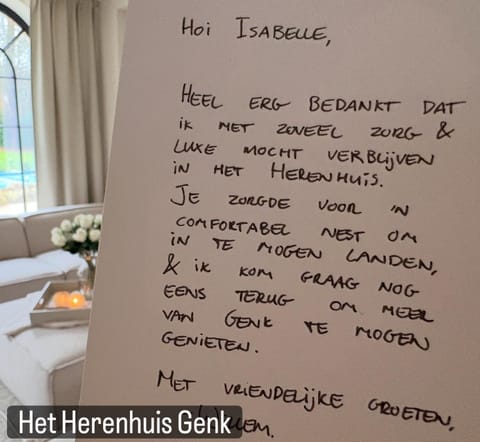 Hoi Isabelle,
Heel erg bedankt dat
ik met zoveel zorg &
luxe mocht verblijven
in het Herenhuis.
Je zorgde voor 'n
comfortabel nest om
in te mogen landen,
& ik kom graag nog
eens terug om meer
van Genk te mogen
genieten.
Met vriendelijke groeten,
Willem.
Het Herenhuis Genk